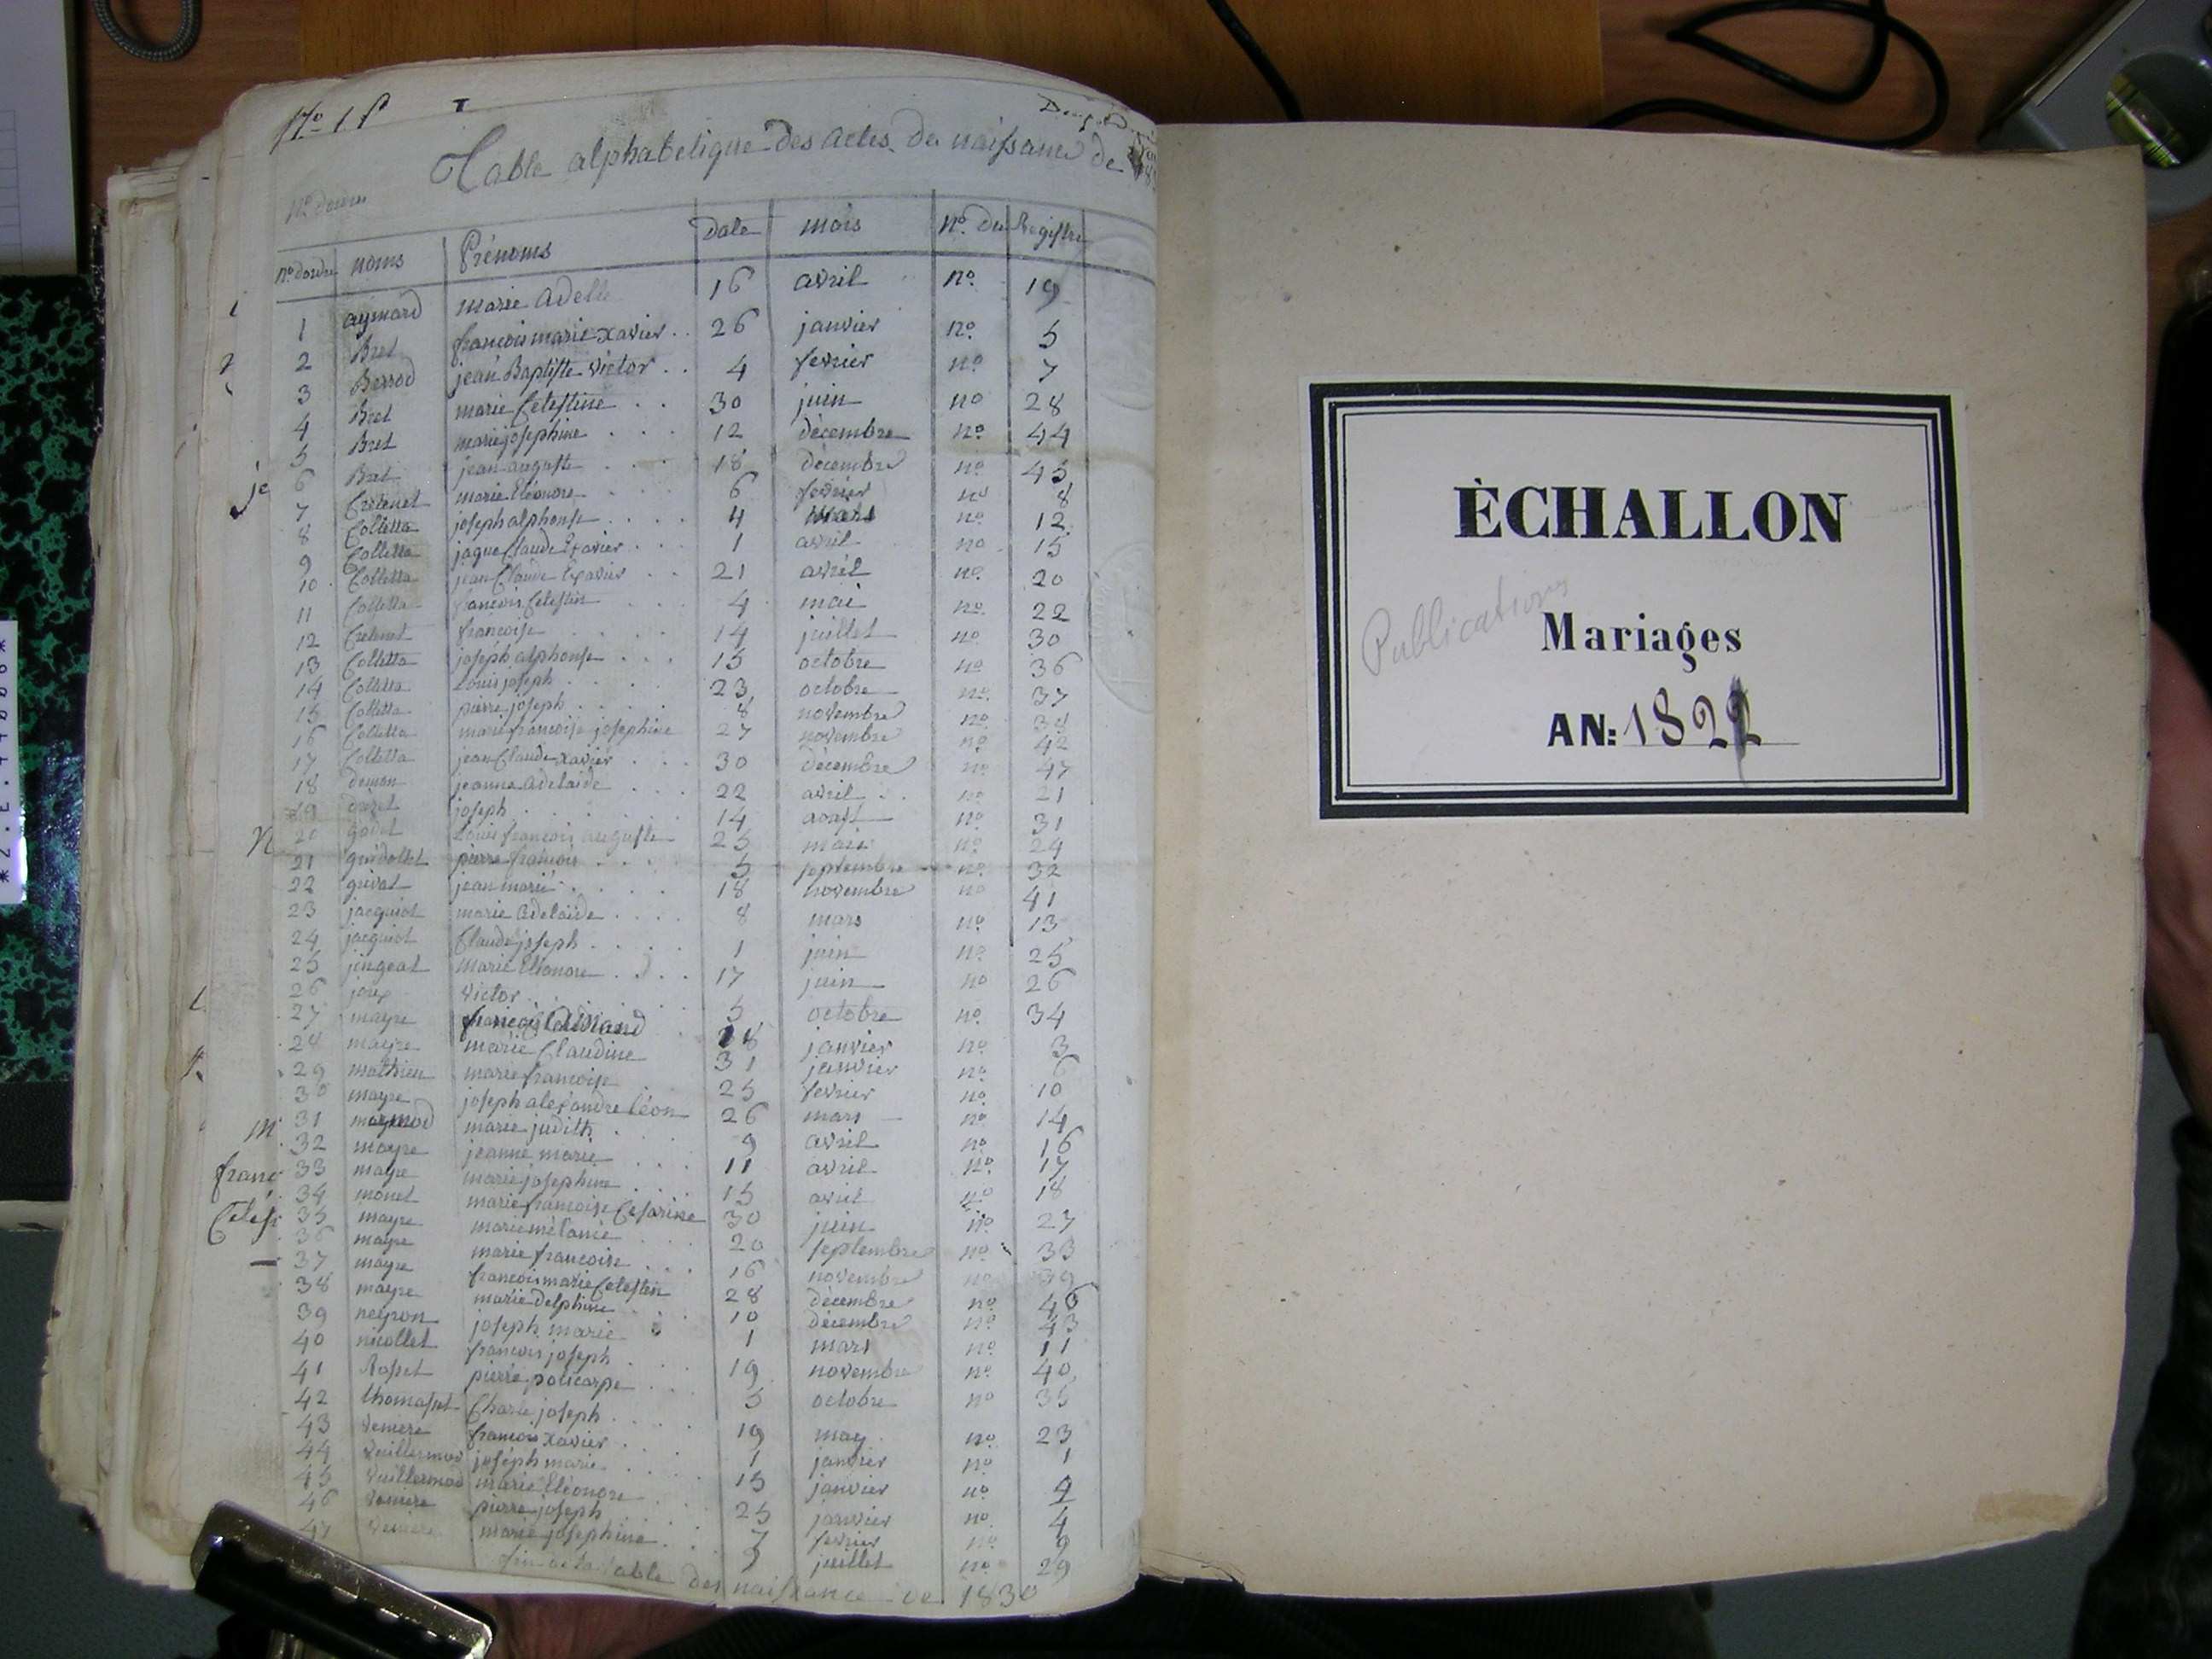 Table alphabetique des actes de naissance de
nº dordre noms Prénoms Date mois nº du Registre
1 aymard marie adelle 16 avril nº 19
2 Bret francois marie xavier 26 janvier nº 5
3 Berrod jean Baptiste victor 4 fevrier nº 7
4 Bret marie Celestine 30 juin nº 28
5 Bret marie josephine 12 décembre nº 44
6 Bret jean auguste 18 décembre nº 45
7 Cretenet marie Eléonore 6 fevrier nº 8
8 Colletta joseph alphonse 4 mars nº 12
9 Colletta jaque Claude Exavier 1 avril nº 15
10 Colletta jean Claude Exavier 21 avril nº 20
11 Colletta francois Celestin 4 mai nº 22
12 Cretenet francoise 14 juillet nº 30
13 Colletta joseph alphonse 15 octobre nº 36
14 Colletta Louis joseph 23 octobre nº 37
15 Colletta pierre joseph 8 novembre nº 38
16 Colletta marie francoise josephine 27 novembre nº 42
17 Colletta jean Claude xavier 30 décembre nº 47
18 jeanne adelaide 22 avril nº 21
19 joseph 14 aoust nº 31
20 godet Louis francois auguste 25 mai nº 24
21 gridollet pierre francois 5 septembre nº 32
22 jean marie 18 novembre nº 41
23 jacquiot marie adelaide 8 mars nº 13
24 jacquiot Claude joseph 1 juin nº 25
25 jingeat marie Eléonore 17 juin nº 26
26 victor 5 octobre nº 34
27 mayre francois 18 janvier nº 3
28 mayre marie Claudine 31 janvier nº 6
29 mathieu marie francoise 25 fevrier nº 10
30 mayre joseph alexandre léon 26 mars nº 14
31 marie judith 9 avril nº 16
32 mayre jeanne marie 11 avril nº 17
33 mayre marie josephine 15 avril nº 18
34 monet marie francoise Cesarine 30 juin nº 27
35 mayre marie mélanie 20 septembre nº 33
36 mayre marie francoise 16 novembre nº 39
37 mayre francois marie Celestin 28 décembre nº 46
38 mayre marie delphine 10 décembre nº 43
39 neyron joseph marie 1 mars nº 11
40 nicollet francois joseph 19 novembre nº 40
41 Rosset pierre policarpe 5 octobre nº 35
42 thomasset Charle joseph 19 may nº 23
43 veniere francois xavier 1 janvier nº 1
44 Vuillermod joseph marie 15 janvier nº 2
45 Vuillermod marie Eléonore 25 janvier nº 4
46 veniere pierre joseph 7 fevrier nº 9
47 veniere marie josephine 9 juillet nº 29
fin de la table des naissance de 1830
ÈCHALLON
Publications
Mariages
AN: 1822